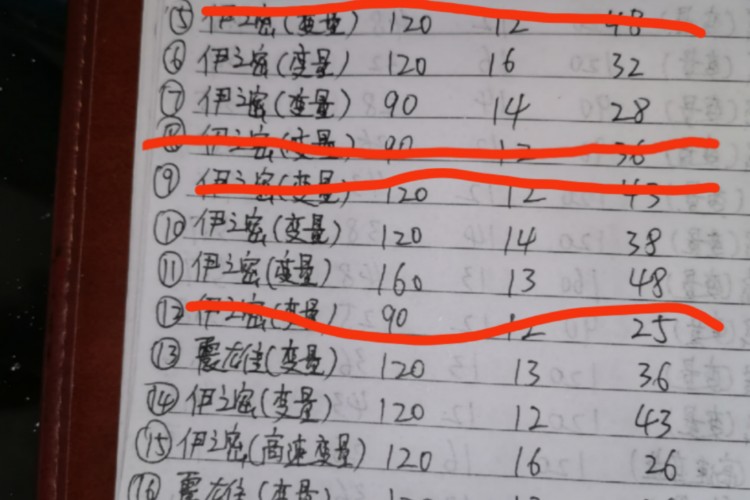 ⑤ 伊之密(变量) 120 12 48
⑥ 伊之密(变量) 120 16 32
⑦ 伊之密(变量) 90 14 28
⑧ 伊之密(变量) 90 12 36
⑨ 伊之密(变量) 120 12 43
⑩ 伊之密(变量) 120 14 38
⑪ 伊之密(变量) 160 13 48
⑫ 伊之密(变量) 90 12 25
⑬ 震雄(变量) 120 13 36
⑭ 伊之密(变量) 120 12 43
⑮ 伊之密(高速变量) 120 16 26
⑯ 震雄(变量)